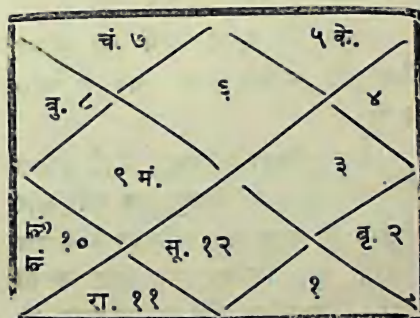 चं. ७ ५ के.
६
बु. ८ ४
९ मं. ३
श. शु. १० सू. १२ बृ. २
रा. ११ १